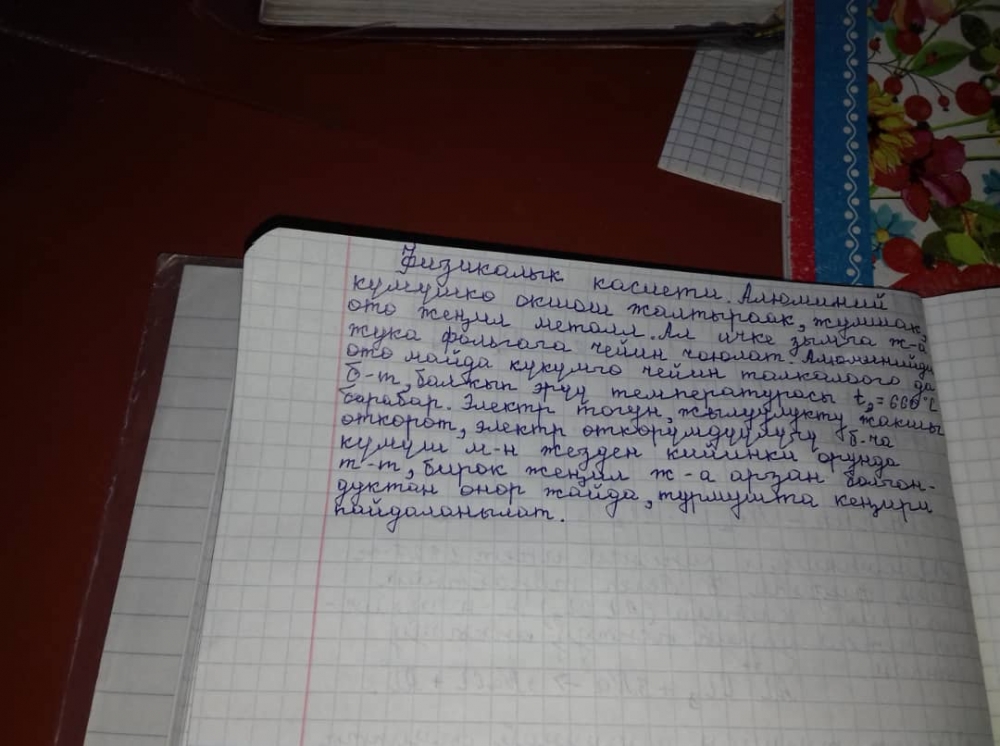 Физикалык касиети. Алюминий
кумушко окшош жалтыраак, жумшак,
ото жеңил металл. Ал ичке зымга ж-а
жука фольгага чейин чоюлат. Алюминийди
ото майда кукумго чейин талкалоого да
б-т, балкып эрүү температурасы t₀=660°С
барабар. Электр тогун, жылуулукту жакшы
откорот, электр откорумдуулугу б-ча
кумуш м-н жезден кийинки орунда
т-т, бирок жеңил ж-а арзан болгон-
дуктан онор жайда, турмушта кеңири
пайдаланылат.